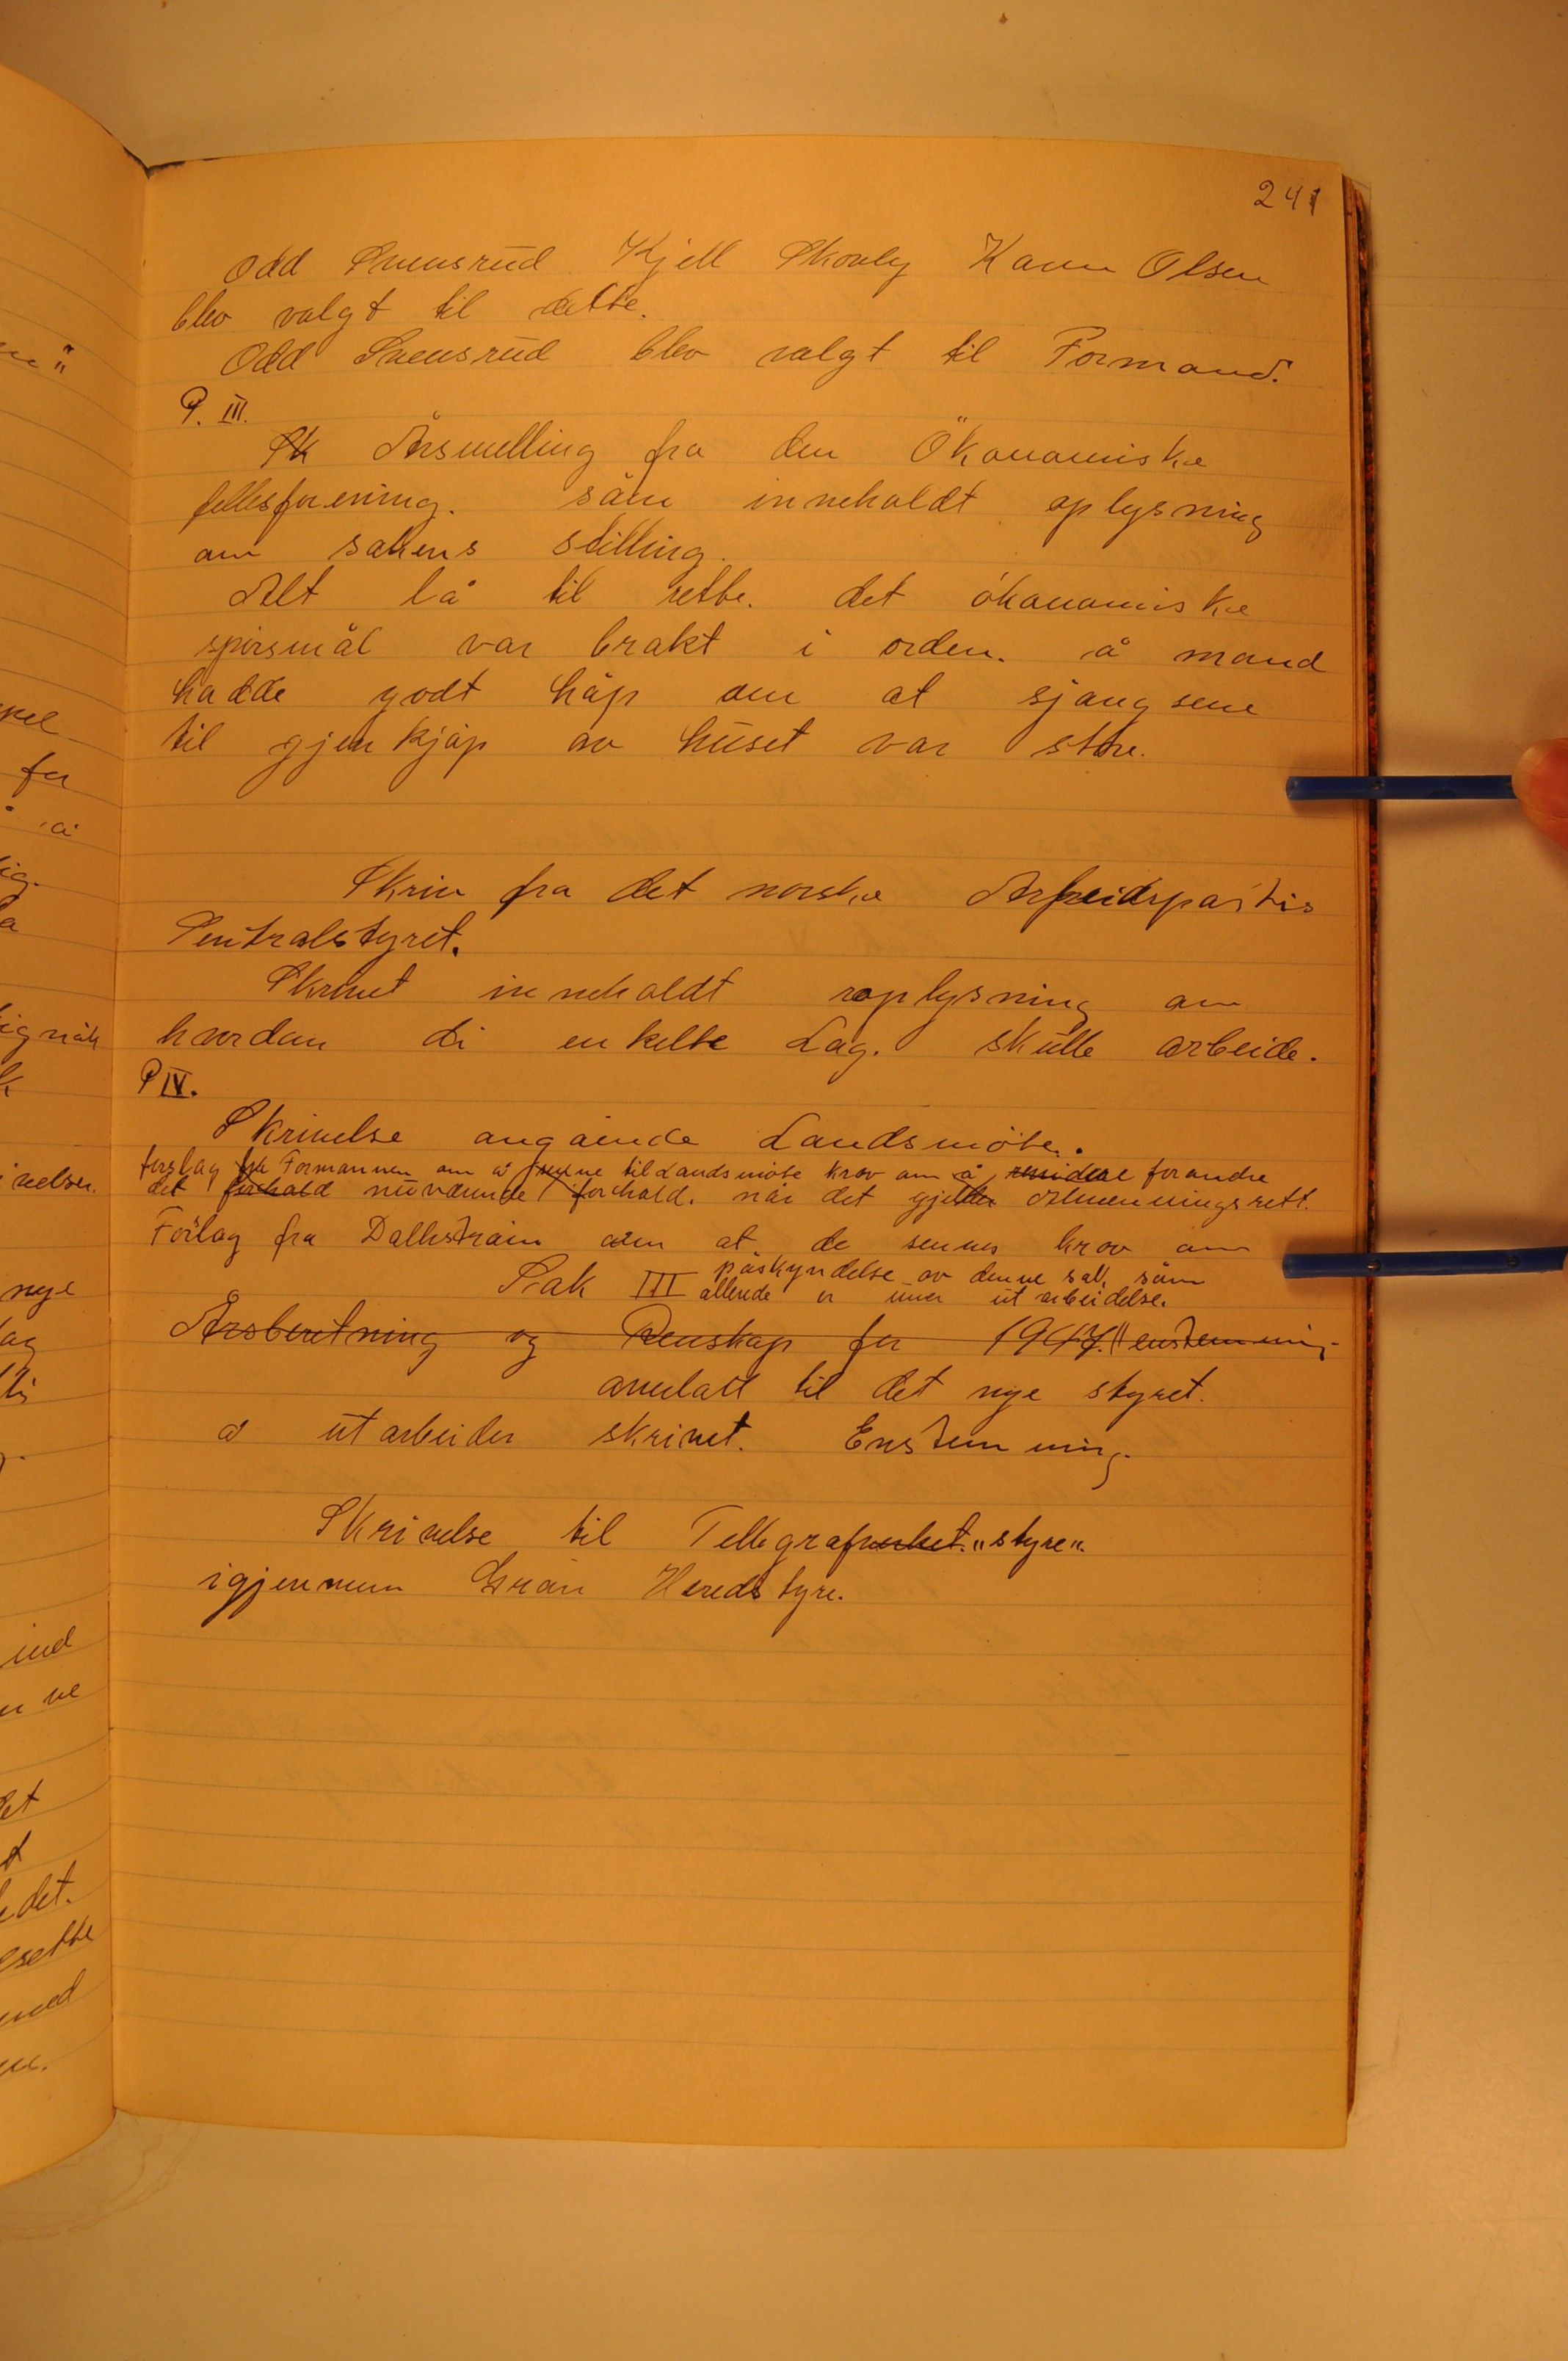 241
Odd Svensrud Kjell Skovly Kaare Olsen
blev valgt til dette.
Odd Svensrud blev valgt til Formand.
P. III.
Sk Årsmelling fra den Ökonomiske
fellesforening. såm inneholdt oplysning
om sakens stilling.
Alt lå til rette. det ökonomiske
spörsmål var brakt i orden. å mand
hadde godt håp om at sjangsene
til gjenkjöp av huset var store.
Skriv fra det norske Arbeidspartis
Sentralstyret.
Skrivet inneholdt oplysning om
hvordan di enkelte Lag. skulle arbeide.
P IV.
Skrivelse angående Landsmöte.
forslag fra Formannen om å senne til Landsmöte krav om å revidere forandre
det forhold nuværende forhold. når det gjeller almenningsrett.
Forslag fra Dallestrain om at de sennes krav om
påskyndelse av denne sak, såm
Sak III allerede er unner utarbeidelse.
Årsberetning og Renskap for 1947. enstemmig
anvelatt til det nye styret.
å utarbeider skrivet. Enstemmig.
Skrivelse til Tellegrafverket. "styre".
igjennem Gran Heredstyre.